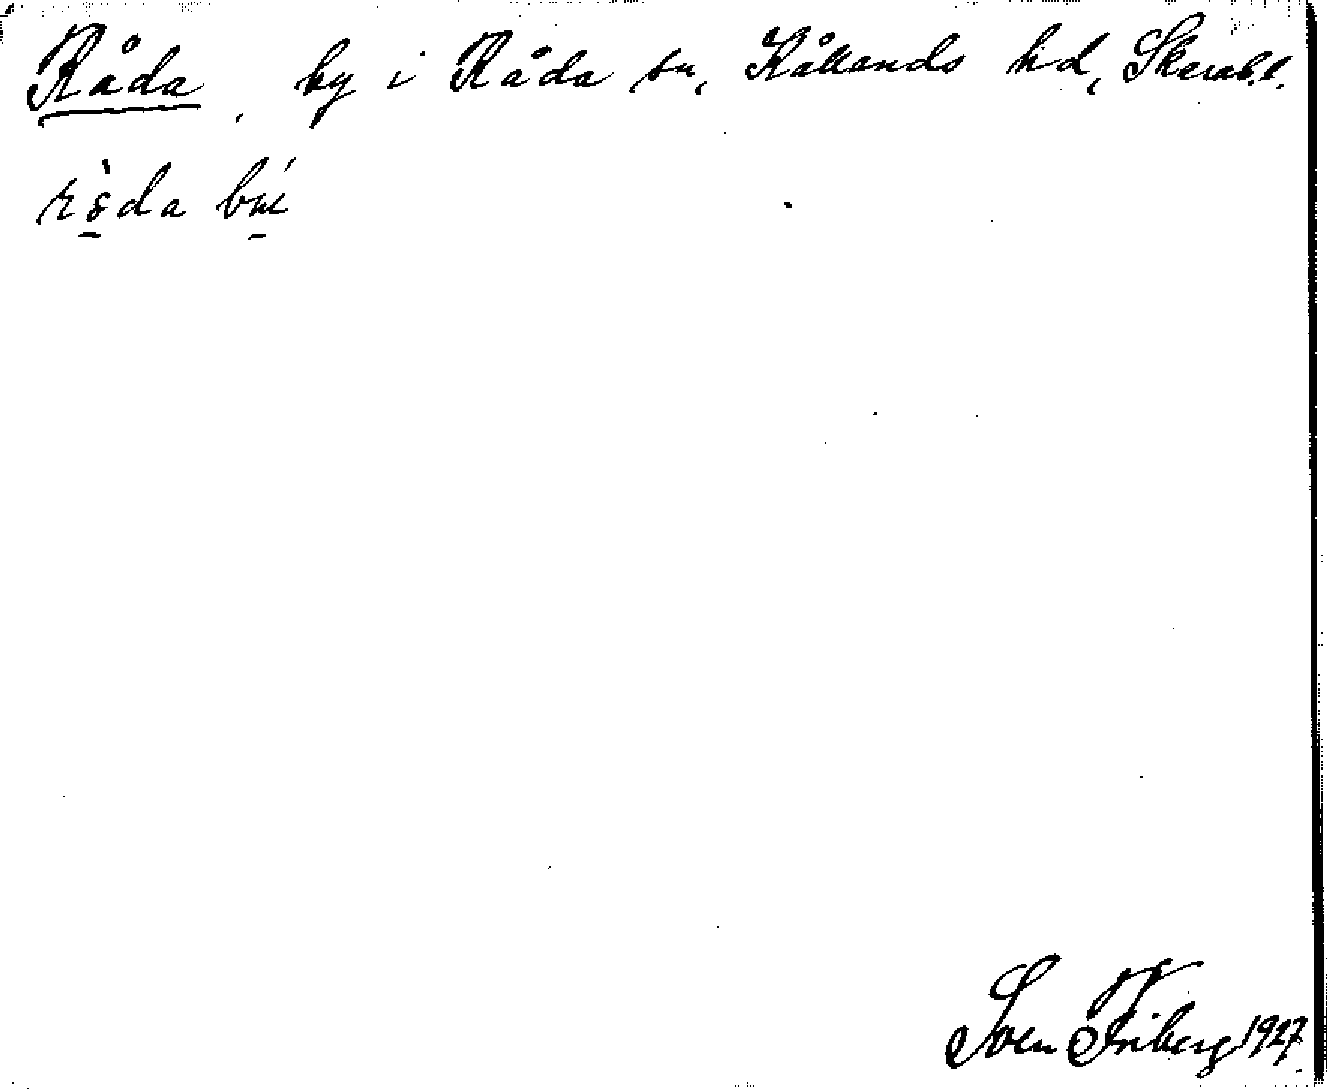 Råda, by i Råda sn, Kållands hd, Skarab.l.
Sven Friberg 1927